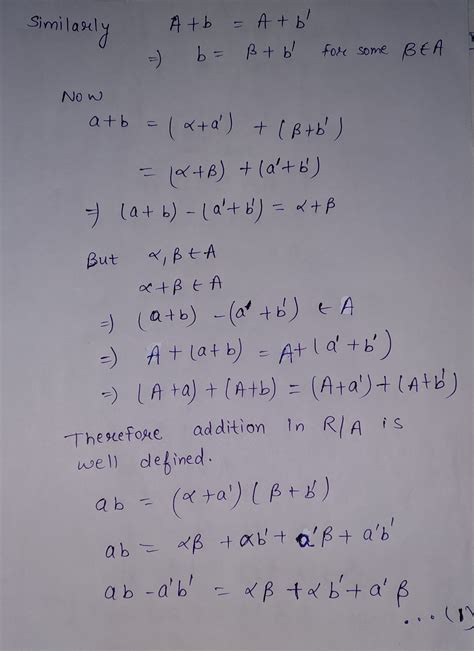 Similarly A+b = A+b'
=) b = β+b' for some β∈A
Now
a+b = (α+a') + (β+b')
= (α+β) + (a'+b')
=) (a+b) - (a'+b') = α+β
But α,β∈A
α+β∈A
=) (a+b) - (a'+b') ∈ A
=) A+(a+b) = A+(a'+b')
=) (A+a)+(A+b) = (A+a')+(A+b')
Therefore addition in R/A is
well defined.
ab = (α+a')(β+b')
ab = αβ + αb' + a'β + a'b'
ab - a'b' = αβ + αb' + a'β
...(1)